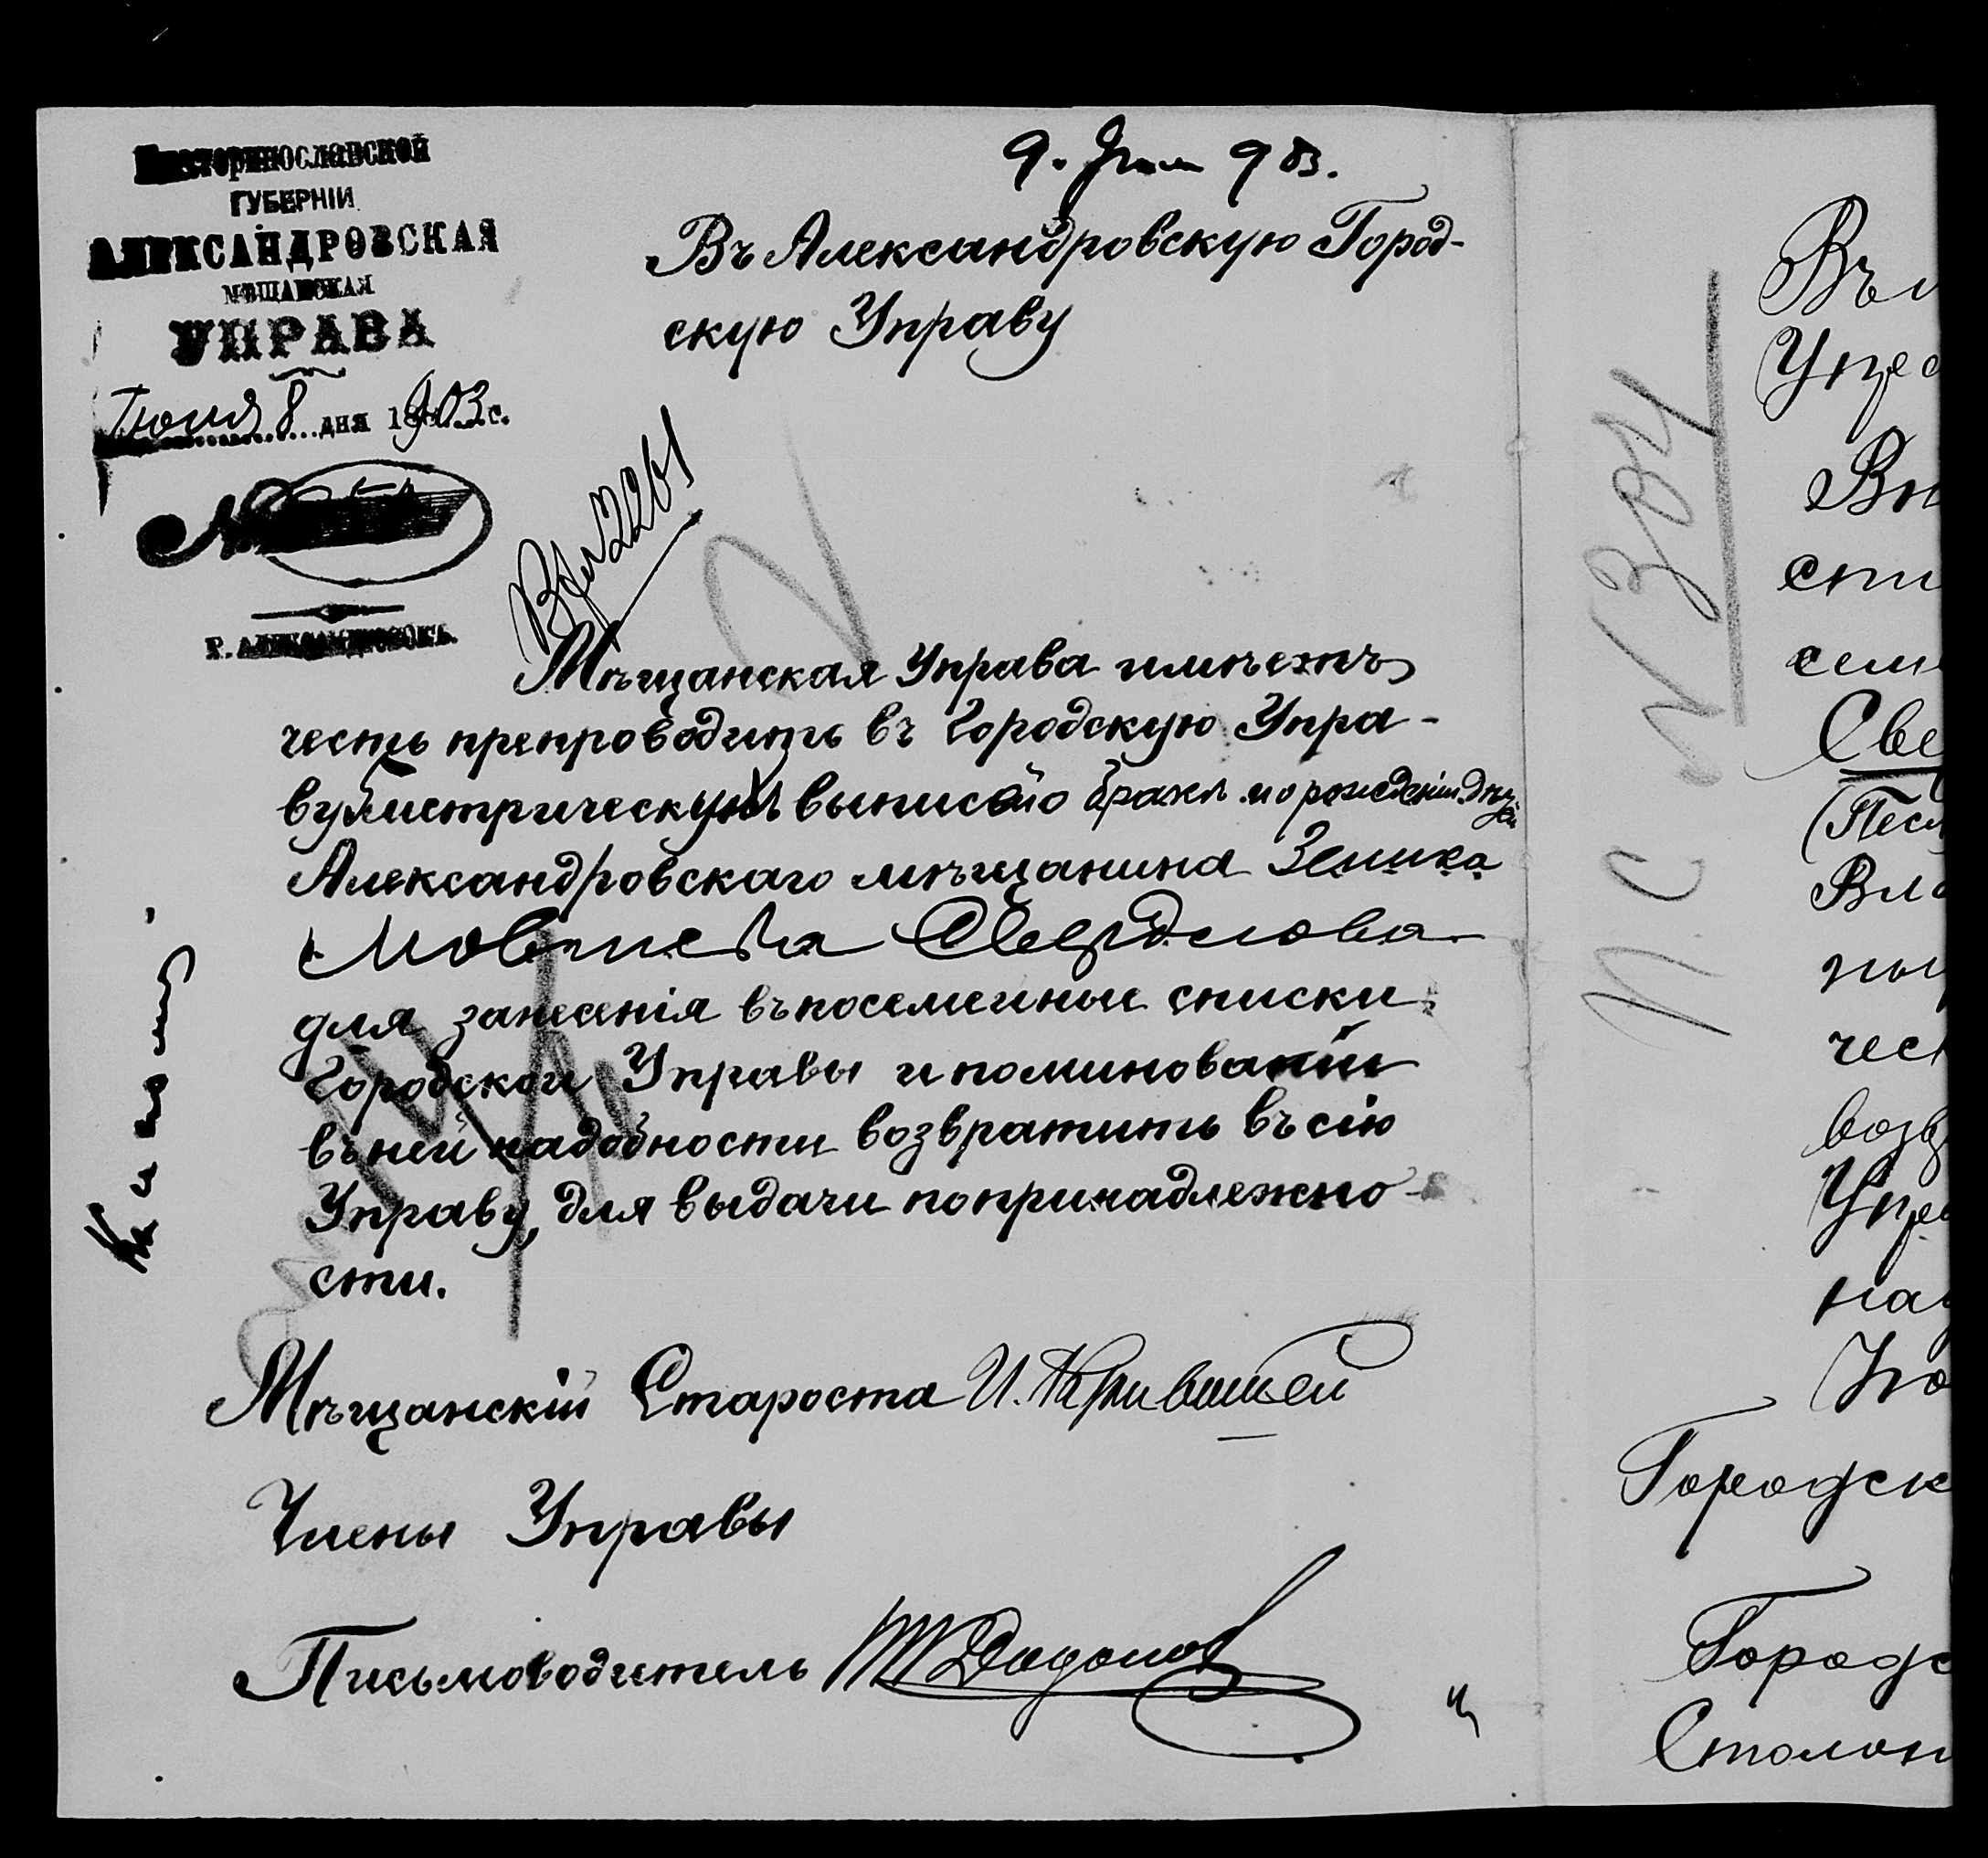 Екатеринославской
ГУБЕРНІИ
АЛЕКСАНДРОВСКАЯ
МѢЩАНСКАЯ
УПРАВА
Іюня 8 дня 1903 г.
№
Г. АЛЕКСАНДРОВСКЪ.
9. 903.
Въ Александровскую Город-
скую Управу
Вх № 2261
Мѣщанская Управа имѣетъ
честь препроводить въ Городскую Упра-
ву метрическую выпись о бракѣ и о рожденіи дѣтей
Александровскаго мѣщанина Зелика
Мовшева Свердлова
для занесенія въ посемейные списки
Городской Управы и по миновати
въ ней надобности возвратить въ сію
Управу, для выдачи по принадлежно-
сти.
Мѣщанскій Староста И.
Члены Управы
Письмоводитель Додонов
№ 304
П. С
Въ
Упра
Вы
спи
семе
Све
(Посл
Вло
ны
чест
возв
Упра
на
По
Городск
Городс
Столон